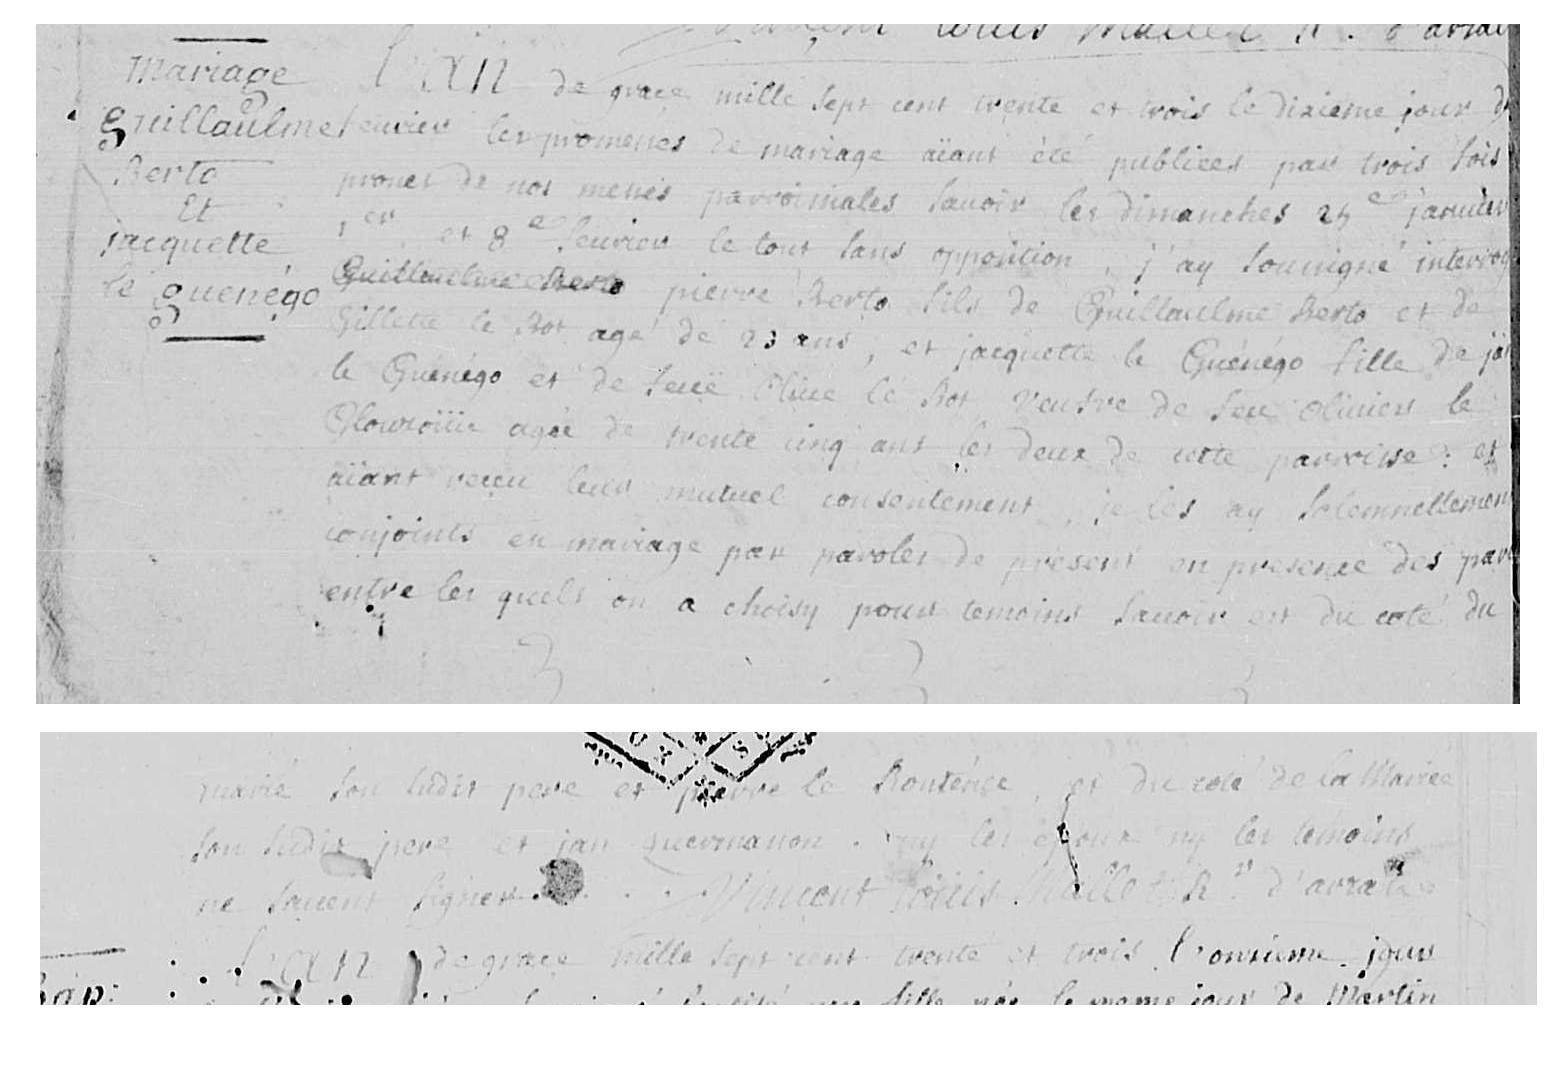 Vincent Louis Mallet R. d'arral
mariage
guillaulme
Berto
Et
jacquette
le guenégo
L'AN de grace mille sept cent trente et trois le dixieme jour de
feuvier les promesses de mariage aïant été publiees par trois fois
prones de nos messes parroissiales sauoir les dimanches 25e januier
1er. et 8e feuvier le tout sans opposition, j'ay soussigné interrog
Guillaulme Berto pierre Berto fils de Guillaulme Berto et de
Gillette le Bot agé de 23 ans, et jacquette le Guénégo fille de ja
le Guénégo et de feuë Olive le Bot veufve de feu Oliuier le
agée de trente cinq ans les deux de cette parroisse: et
aïant reçeu leur mutuel consentement, je les ay solemnellemen
conjoints en mariage par paroles de present en presence des par
entre les quels on a choisy pour temoins sauoir est du coté du
marié son ludit pere et pierre le et du coté de la Mariée
son sudit pere et jan quermanon. ny les epoux ny les temoins
ne sauent signer. Vincent Louis Mallet Rr. d'arral
L'AN de grace mille sept cent trente et trois l'onzieme jour
bap: fille née le meme jour de Martin